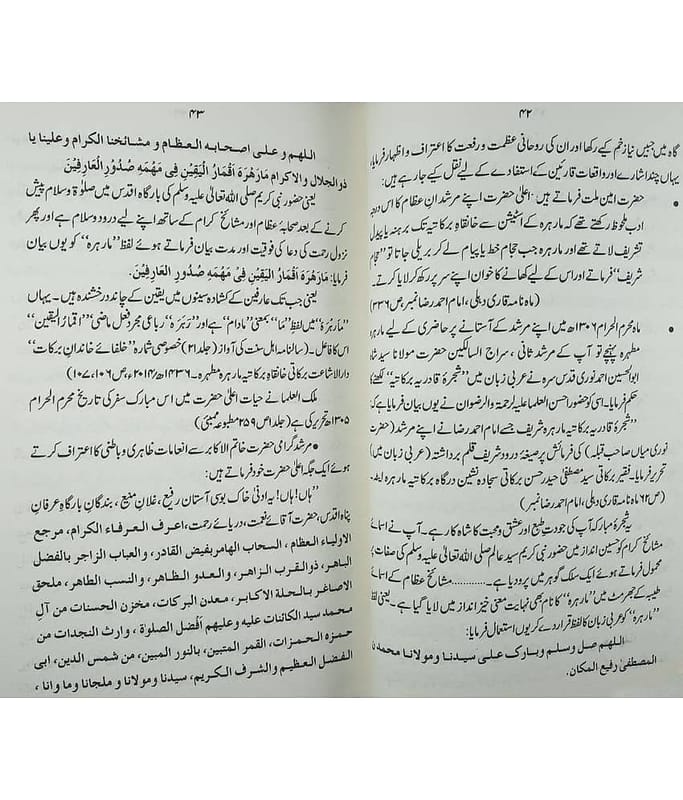 ۴۲
گاہ میں جبیں نیاز خم کیے رکھا اور ان کی روحانی عظمت و رفعت کا اعتراف و اظہار فرمایا
یہاں چند اشارے اور واقعات قارئین کے استفادے کے لیے نقل کیے جا رہے ہیں:
• حضرت امین ملت فرماتے ہیں: اعلیٰ حضرت اپنے مرشدان عظام کا اس درجہ
ادب ملحوظ رکھتے تھے کہ مارہرہ کے اسٹیشن سے خانقاہ برکاتیہ تک برہنہ پا پیدل
تشریف لاتے تھے اور مارہرہ سے جب حجام خط یا پیام لے کر بریلی جاتا تو "حجام
شریف" فرماتے اور اس کے لیے کھانے کا خوان اپنے سر پر رکھ کر لایا کرتے۔
(ماہ نامہ قاری دہلی، امام احمد رضا نمبر، ص ۲۳۶)
• ماہ محرم الحرام ۱۳۰۶ھ میں اپنے مرشد کے آستانے پر حاضری کے لیے مارہرہ
مطہرہ پہنچے تو آپ کے مرشد ثانی، سراج السالکین حضرت مولانا سید شاہ
ابوالحسین احمد نوری قدس سرہ نے عربی زبان میں "شجرۂ قادریہ برکاتیہ" لکھنے کا
حکم فرمایا۔ اسی کو حضور احسن العلما علیہ الرحمۃ والرضوان نے یوں بیان فرمایا:
"شجرۂ قادریہ برکاتیہ مارہرہ شریف جسے امام احمد رضا نے اپنے مرشد (حضرت
نوری میاں صاحب قبلہ) کی فرمائش پر صیغۂ درود شریف قلم برداشتہ (عربی زبان میں)
تحریر فرمایا۔ فقیر برکاتی سید مصطفیٰ حیدر حسن برکاتی سجادہ نشین درگاہ برکاتیہ مارہرہ
(ص ۶۲ ماہ نامہ قاری دہلی، امام احمد رضا نمبر)
یہ شجرۂ مبارکہ آپ کی جودت طبع اور عشق و محبت کا شاہ کار ہے۔ آپ نے اسمائے
مشائخ کرام کو حسین انداز میں حضور نبی کریم سید عالم صلی اللہ تعالیٰ علیہ وسلم کی صفات پر
محمول فرماتے ہوئے ایک سلک گوہر میں پرو دیا ہے۔............مشائخ عظام کے اسمائے
طیبہ کے جھرمٹ میں "مارہرہ" کا نام بھی نہایت معنی خیز انداز میں لایا گیا ہے۔ یعنی لفظ
"مارہرہ" کو عربی زبان کا لفظ قرار دے کر یوں استعمال فرمایا:
اللهم صل وسلم وبارک علی سیدنا ومولانا محمد
المصطفیٰ رفیع المکان.
۴۳
اللهم و علی اصحابه العظام و مشائخنا الکرام وعلینا یا
ذوالجلال والاکرام مَارَهْرَهَ اَقْمَارُ الْیَقِیْنِ فِی مَهْمَهِ صُدُوْرِ الْعَارِفِیْنَ
یعنی حضور نبی کریم صلی اللہ تعالیٰ علیہ وسلم کی بارگاہ اقدس میں صلوٰۃ وسلام پیش
کرنے کے بعد صحابۂ عظام اور مشائخ کرام کے ساتھ اپنے لیے درود وسلام ہے اور پھر
نزول رحمت کی دعا کی فوقیت اور مدت بیان فرماتے ہوئے لفظ "مارہرہ" کو یوں بیان
فرمایا: مَارَهْرَهَ اَقْمَارُ الْیَقِیْنِ فِیْ مَهْمَهِ صُدُوْرِ الْعَارِفِیْنَ.
یعنی جب تک عارفین کے کشادہ سینوں میں یقین کے چاند درخشندہ ہیں۔ یہاں
"مَارَهْرَهَ" میں لفظ "مَا" بمعنی "مادام" ہے اور "رَهْرَهَ" رباعی مجرد فعل ماضی "اَقْمَارُ الْیَقِیْن"
اس کا فاعل۔ (سالنامہ اہل سنت کی آواز (جلد ۲۱) خصوصی شمارہ "خلفائے خاندان برکات"
دارالاشاعت برکاتی خانقاہ برکاتیہ مارہرہ مطہرہ۔ ۱۴۳۶ھ/۲۰۱۴ء، ص ۱۰۶، ۱۰۷)
ملک العلما نے حیات اعلیٰ حضرت میں اس مبارک سفر کی تاریخ محرم الحرام
۱۳۰۵ھ تحریر کی ہے (جلد ا ص ۲۵۹ مطبوعہ ممبئی)
• مرشد گرامی حضرت خاتم الاکابر سے انعامات ظاہری و باطنی کا اعتراف کرتے
ہوئے ایک جگہ اعلیٰ حضرت خود فرماتے ہیں:
"ہاں! ہاں! یہ ادنیٰ خاک بوسی آستان رفیع، غلامان منیع، بندگان بارگاہ عرفان
پناہ اقدس، حضرت آقائے نعمت، دریائے رحمت، اعرف العرفاء الکرام، مرجع
الاولیاء العظام، السحاب الهامر بفیض القادر، والعباب الزاجر بالفضل
الباهر، ذوالقرب الزاهر، والعدو الظاهر، والنسب الطاهر، ملحق
الاصاغر بالجلة الاکابر، معدن البرکات، مخزن الحسنات من آل
محمد سید الکائنات علیه وعلیهم افضل الصلوٰة، وارث النجدات من
حمزه الحمزات، القمر المتبین، بالنور المبین، من شمس الدین، ابی
الفضل العظیم والشرف الکریم، سیدنا ومولانا و ملجانا وما وانا،